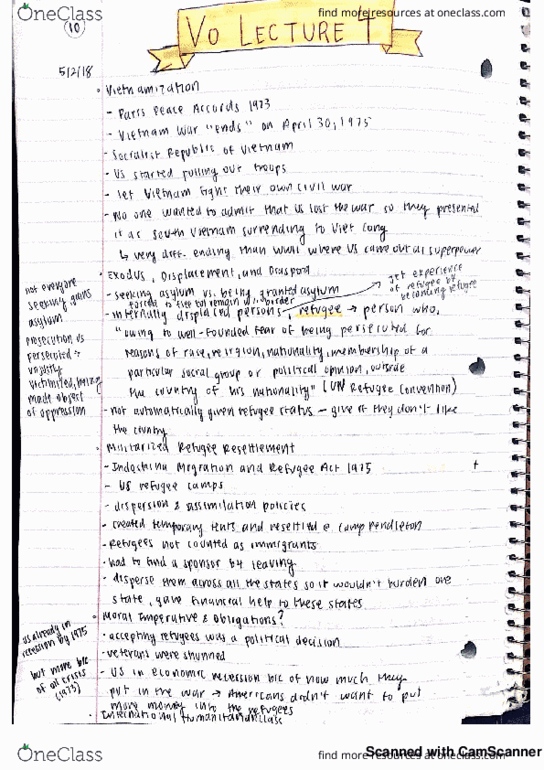 OneClass
find more resources at oneclass.com
10
VO LECTURE 7
5/2/18
• Vietnamization
- Paris Peace Accords 1973
- Vietnam War "ends" on April 30, 1975
- Socialist Republic of Vietnam
- US started pulling out troops
- let Vietnam fight their own civil war
- No one wanted to admit that US lost the war so they presented
it as South Vietnam surrending to Viet Cong
↳ very diff. ending than WWII where US came out as superpower
• Exodus, Displacement, and Diaspora
get experience
of refugee by
becoming refugee
- seeking asylum vs. being granted asylum
forced to flee but remain w/in border
- internally displaced persons, refugee → person who,
"owing to well-founded fear of being persecuted for
reasons of race, religion, nationality, membership of a
particular social group or political opinion, outside
the country of his nationality" (UN Refugee Convention)
not everyone
seeking gains
asylum
prosecution vs
persecuted →
victimized, being
made object
of oppression
- not automatically given refugee status - give if they don't like
the country
• Militarized Refugee Resettlement
- Indochina Migration and Refugee Act 1975
- US refugee camps
- dispersion & assimilation policies
- created temporary tents and resettled @ Camp Pendleton
- Refugees not counted as immigrants
- had to find a sponsor b4 leaving
- disperse them across all the states so it wouldn't burden one
state, gave financial help to these states
• Moral Imperative & Obligations?
- accepting refugees was a political decision
- veterans were shunned
- US in economic recession b/c of how much they
put in the war → Americans didn't want to put
more money into the refugees
us already in
recession by 1975
but more b/c
of oil crisis
(1973)
• International Humanitarian
OneClass
find more resources at oneclass.com
Scanned with CamScanner